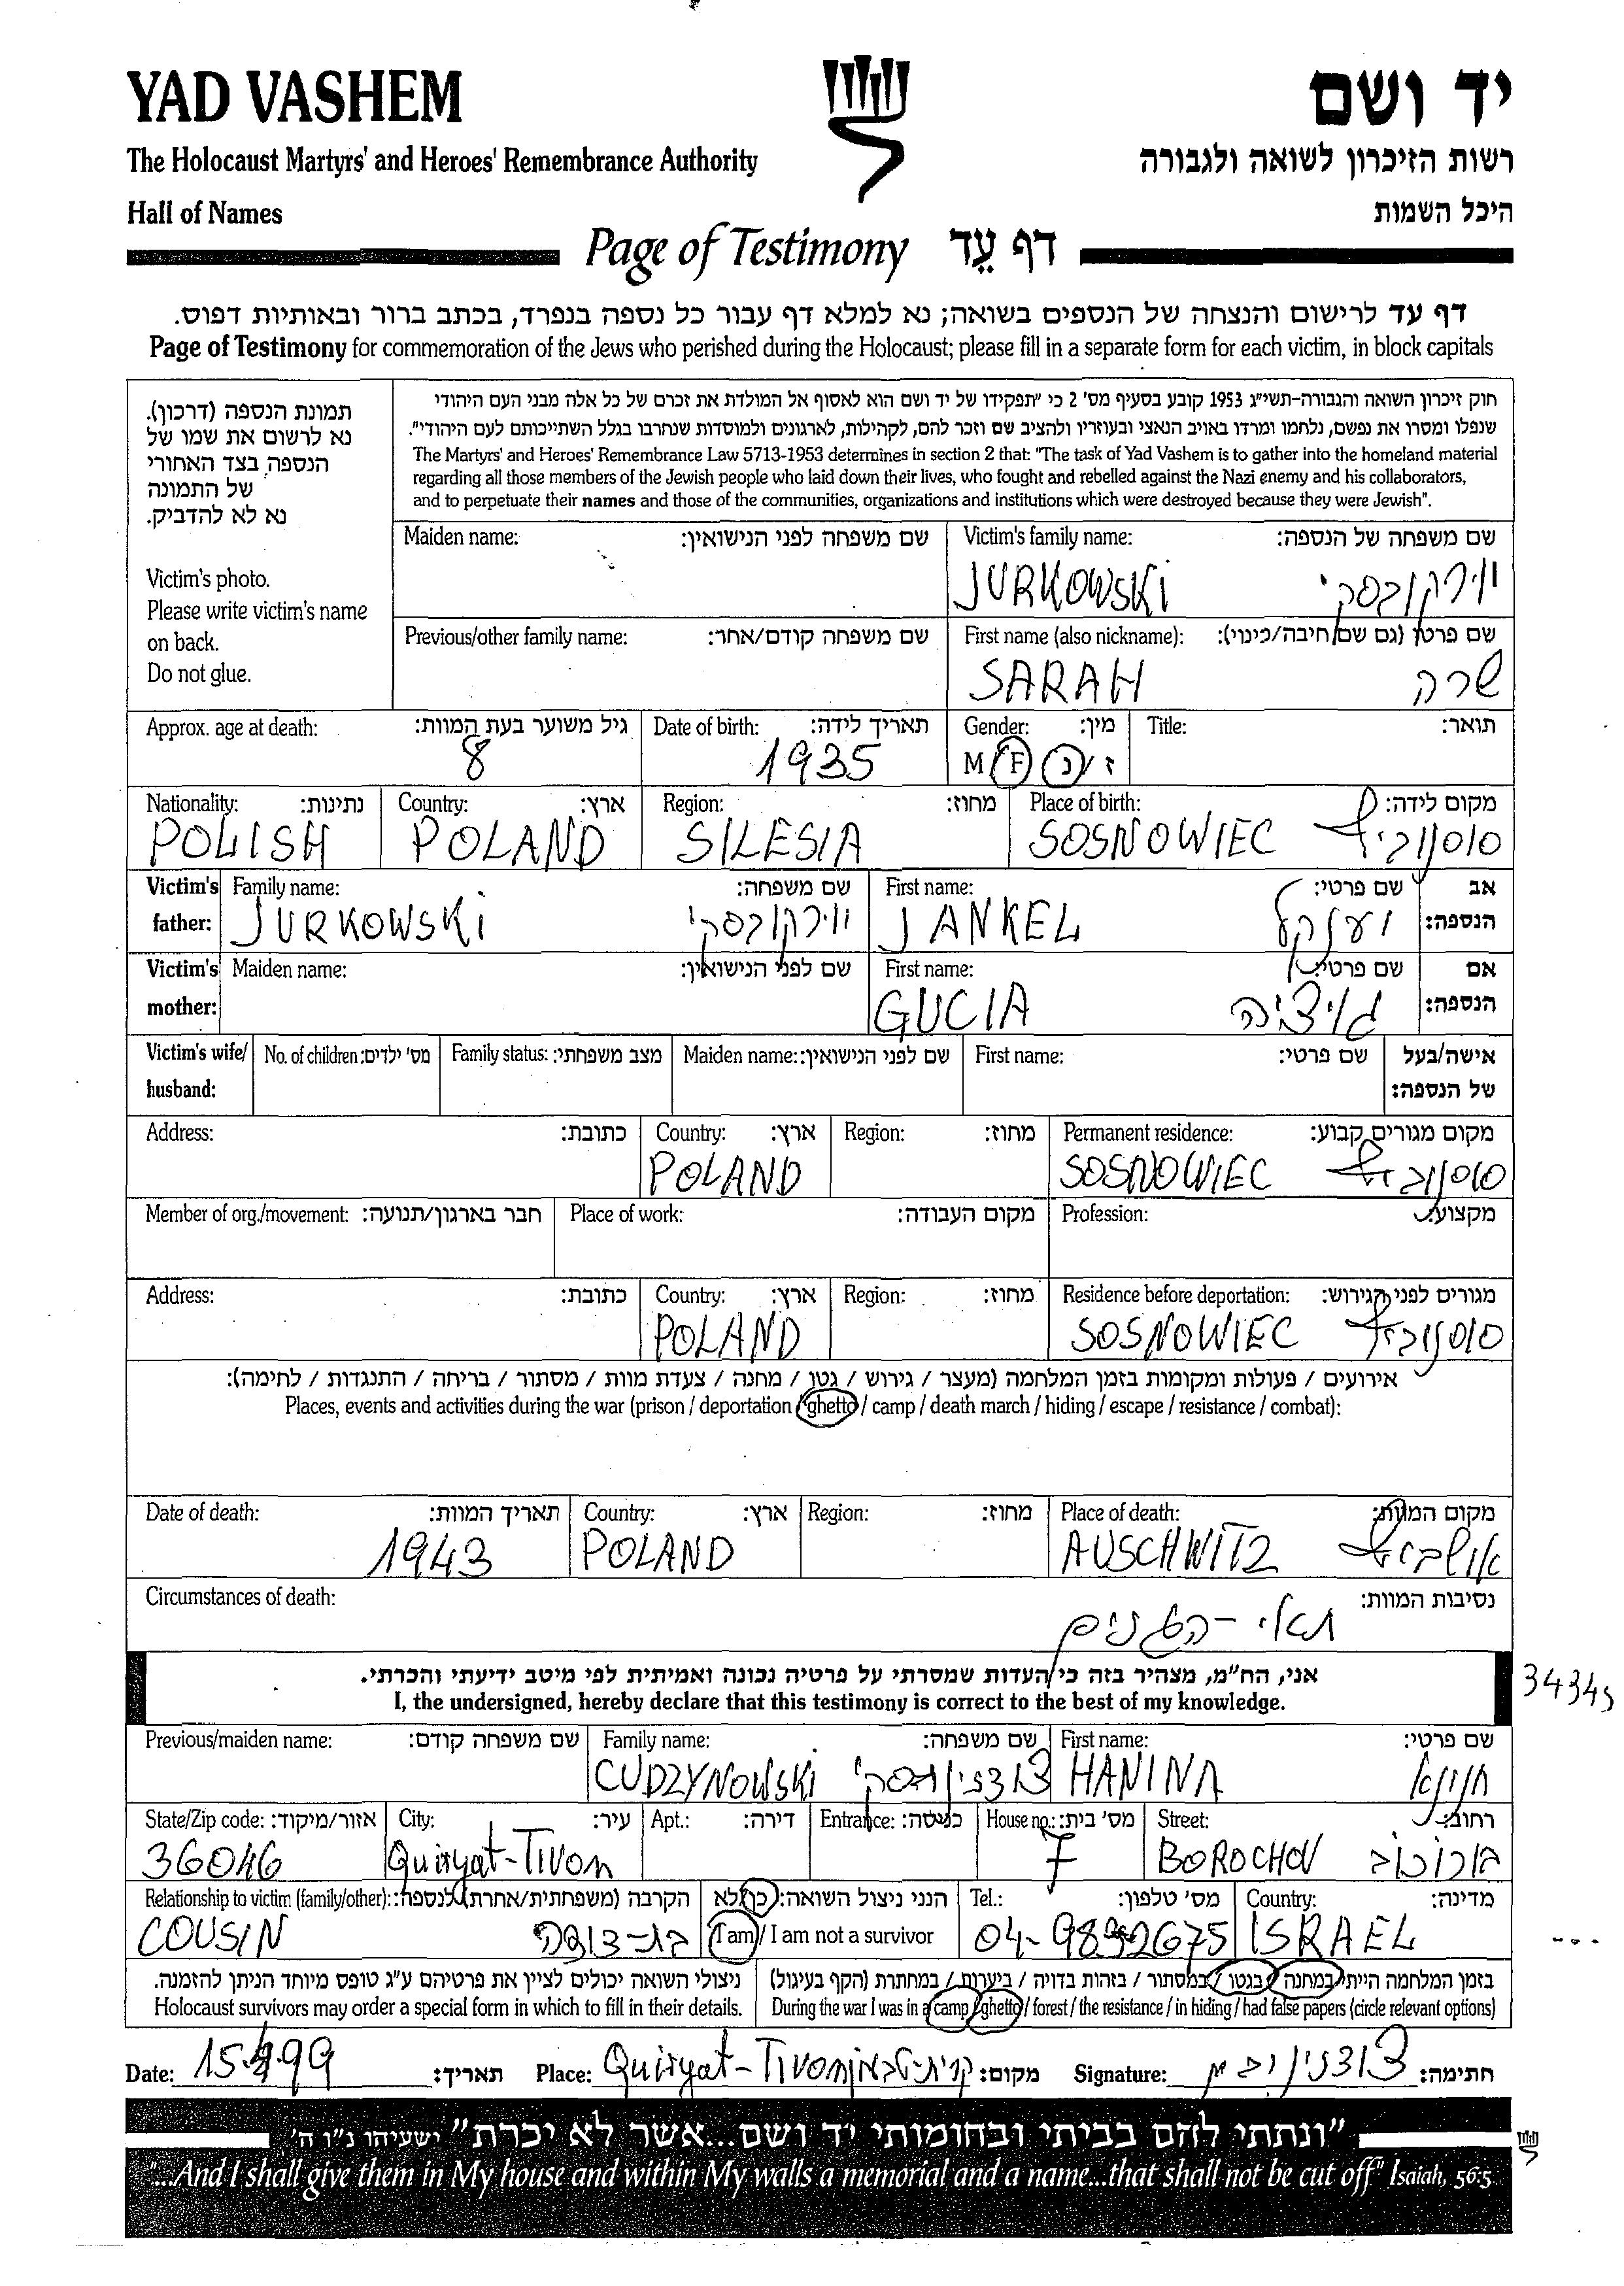 YAD VASHEM יד ושם
The Holocaust Martyrs' and Heroes' Remembrance Authority רשות הזיכרון לשואה ולגבורה
Hall of Names היכל השמות
Page of Testimony דף עֵד
דף עד לרישום והנצחה של הנספים בשואה; נא למלא דף עבור כל נספה בנפרד, בכתב ברור ובאותיות דפוס.
Page of Testimony for commemoration of the Jews who perished during the Holocaust; please fill in a separate form for each victim, in block capitals
תמונת הנספה (דרכון).
נא לרשום את שמו של
הנספה בצד האחורי
של התמונה
נא לא להדביק.
Victim's photo.
Please write victim's name
on back.
Do not glue.
חוק זיכרון השואה והגבורה-תשי"ג 1953 קובע בסעיף מס' 2 כי "תפקידו של יד ושם הוא לאסוף אל המולדת את זכרם של כל אלה מבני העם היהודי
שנפלו ומסרו את נפשם, נלחמו ומרדו באויב הנאצי ובעוזריו ולהציב שם וזכר להם, לקהילות, לארגונים ולמוסדות שנחרבו בגלל השתייכותם לעם היהודי".
The Martyrs' and Heroes' Remembrance Law 5713-1953 determines in section 2 that: "The task of Yad Vashem is to gather into the homeland material
regarding all those members of the Jewish people who laid down their lives, who fought and rebelled against the Nazi enemy and his collaborators,
and to perpetuate their names and those of the communities, organizations and institutions which were destroyed because they were Jewish".
Maiden name: שם משפחה לפני הנישואין: Victim's family name: שם משפחה של הנספה:
JURKOWSKI יורקובסקי
Previous/other family name: שם משפחה קודם/אחר: First name (also nickname): שם פרטי (גם שם חיבה/כינוי):
SARAH שרה
Approx. age at death: גיל משוער בעת המוות: Date of birth: תאריך לידה: Gender: מין: Title: תואר:
8 1935 M F ז / נ
Nationality: נתינות: Country: ארץ: Region: מחוז: Place of birth: מקום לידה:
POLISH POLAND SILESIA SOSNOWIEC סוסנוביץ
Victim's father: Family name: שם משפחה: First name: שם פרטי: אב הנספה:
JURKOWSKI יורקובסקי JANKEL יענקל
Victim's mother: Maiden name: שם לפני הנישואין: First name: שם פרטי: אם הנספה:
GUCIA גוציה
Victim's wife/ husband: No. of children: מס' ילדים: Family status: מצב משפחתי: Maiden name: שם לפני הנישואין: First name: שם פרטי: אישה/בעל של הנספה:
Address: כתובת: Country: ארץ: Region: מחוז: Permanent residence: מקום מגורים קבוע:
POLAND SOSNOWIEC סוסנוביץ
Member of org./movement: חבר בארגון/תנועה: Place of work: מקום העבודה: Profession: מקצוע:
Address: כתובת: Country: ארץ: Region: מחוז: Residence before deportation: מגורים לפני הגירוש:
POLAND SOSNOWIEC סוסנוביץ
אירועים / פעולות ומקומות בזמן המלחמה (מעצר / גירוש / גטו / מחנה / צעדת מוות / מסתור / בריחה / התנגדות / לחימה):
Places, events and activities during the war (prison / deportation / ghetto / camp / death march / hiding / escape / resistance / combat):
Date of death: תאריך המוות: Country: ארץ: Region: מחוז: Place of death: מקום המוות:
1943 POLAND AUSCHWITZ אושביץ
Circumstances of death: נסיבות המוות:
תאי-הגזים
אני, הח"מ, מצהיר בזה כי העדות שמסרתי על פרטיה נכונה ואמיתית לפי מיטב ידיעתי והכרתי.
I, the undersigned, hereby declare that this testimony is correct to the best of my knowledge.
34345
Previous/maiden name: שם משפחה קודם: Family name: שם משפחה: First name: שם פרטי:
CUDZYNOWSKI צודזינובסקי HANINA חנינא
State/Zip code: אזור/מיקוד: City: עיר: Apt.: דירה: Entrance: כניסה: House no.: מס' בית: Street: רחוב:
36046 Quiryat-Tivon 7 BOROCHOV בורוכוב
Relationship to victim (family/other): הקרבה (משפחתית/אחרת) לנספה: הנני ניצול השואה: כן/לא Tel.: מס' טלפון: Country: מדינה:
COUSIN בת-דודה I am / I am not a survivor 04-9832675 ISRAEL
ניצולי השואה יכולים לציין את פרטיהם ע"ג טופס מיוחד הניתן להזמנה. בזמן המלחמה הייתי במחנה / בגטו / במסתור / בזהות בדויה / ביערות / במחתרת (הקף בעיגול)
Holocaust survivors may order a special form in which to fill in their details. During the war I was in a camp / ghetto / forest / the resistance / in hiding / had false papers (circle relevant options)
Date: 15.4.99 תאריך: Place: Quiryat-Tivon קרית-טבעון מקום: Signature: צודזינובסקי חתימה:
"ונתתי להם בביתי ובחומותי יד ושם...אשר לא יכרת" ישעיהו נ"ו ה'
"...And I shall give them in My house and within My walls a memorial and a name...that shall not be cut off" Isaiah, 56:5